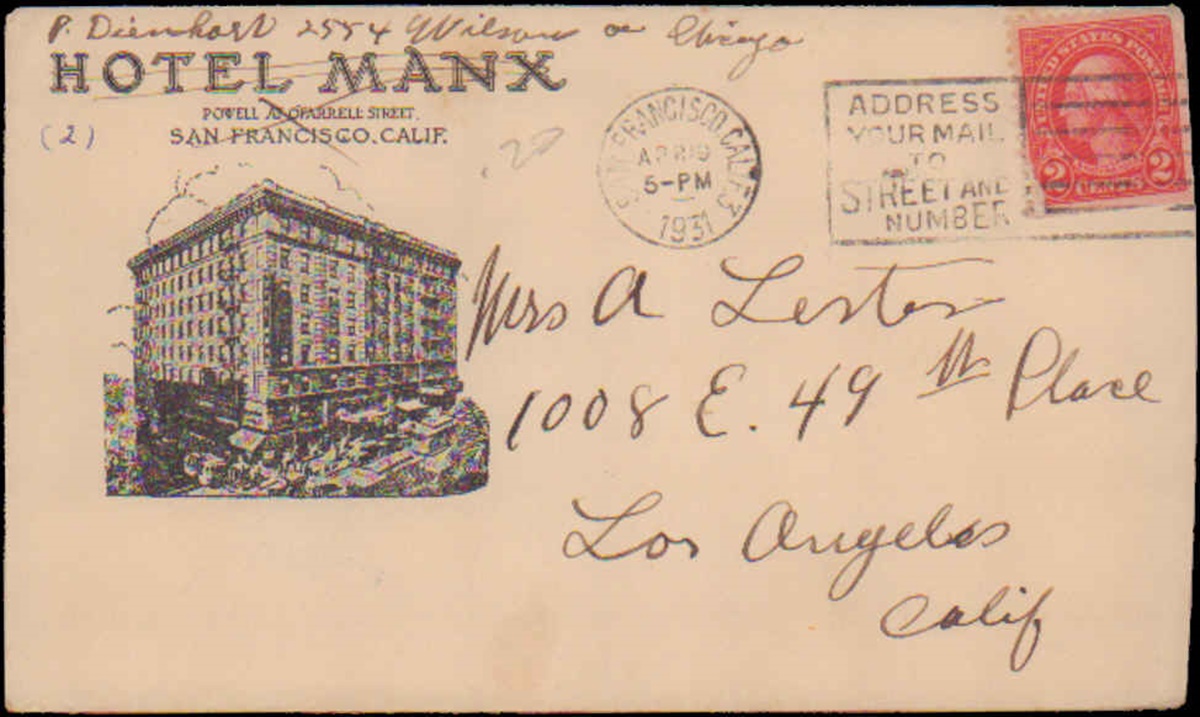 P. Dienhart 2554 Wilson Chicago
HOTEL MANX
POWELL AT O'FARRELL STREET.
SAN FRANCISCO, CALIF.
(2)
20
SAN FRANCISCO, CALIF. 3
APR 19
5-PM
1931
ADDRESS
YOUR MAIL
TO
STREET AND
NUMBER
UNITED STATES POSTAGE
2 CENTS 2
Mrs A Lester
1008 E. 49th Place
Los Angeles
Calif